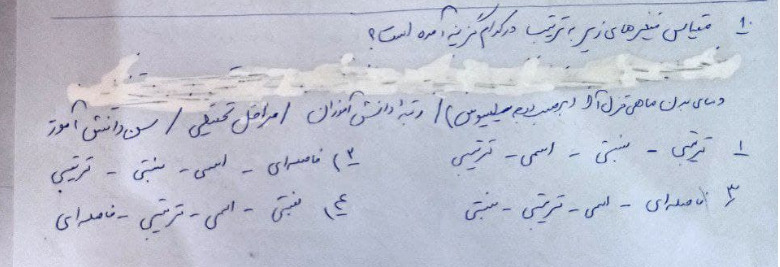 ۱. مقیاس متغیرهای زیر به ترتیب در کدام گزینه آمده است؟
دمای بدن ماهی قزل آلا (برحسب درجه سیلیسوس) / رتبهٔ دانش آموزان / مراحل تحقیق / سن دانش آموز
۱ ترتیبی - نسبتی - اسمی - ترتیبی ۲) فاصله‌ای - اسمی - نسبتی - ترتیبی
۳) فاصله‌ای - اسمی - ترتیبی - نسبتی ۴) نسبتی - اسمی - ترتیبی - فاصله‌ای